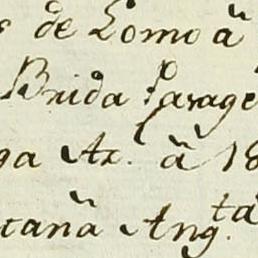 s de Lomo ã
Brida Parage
ga Az. ã 18
taña Ang.ta